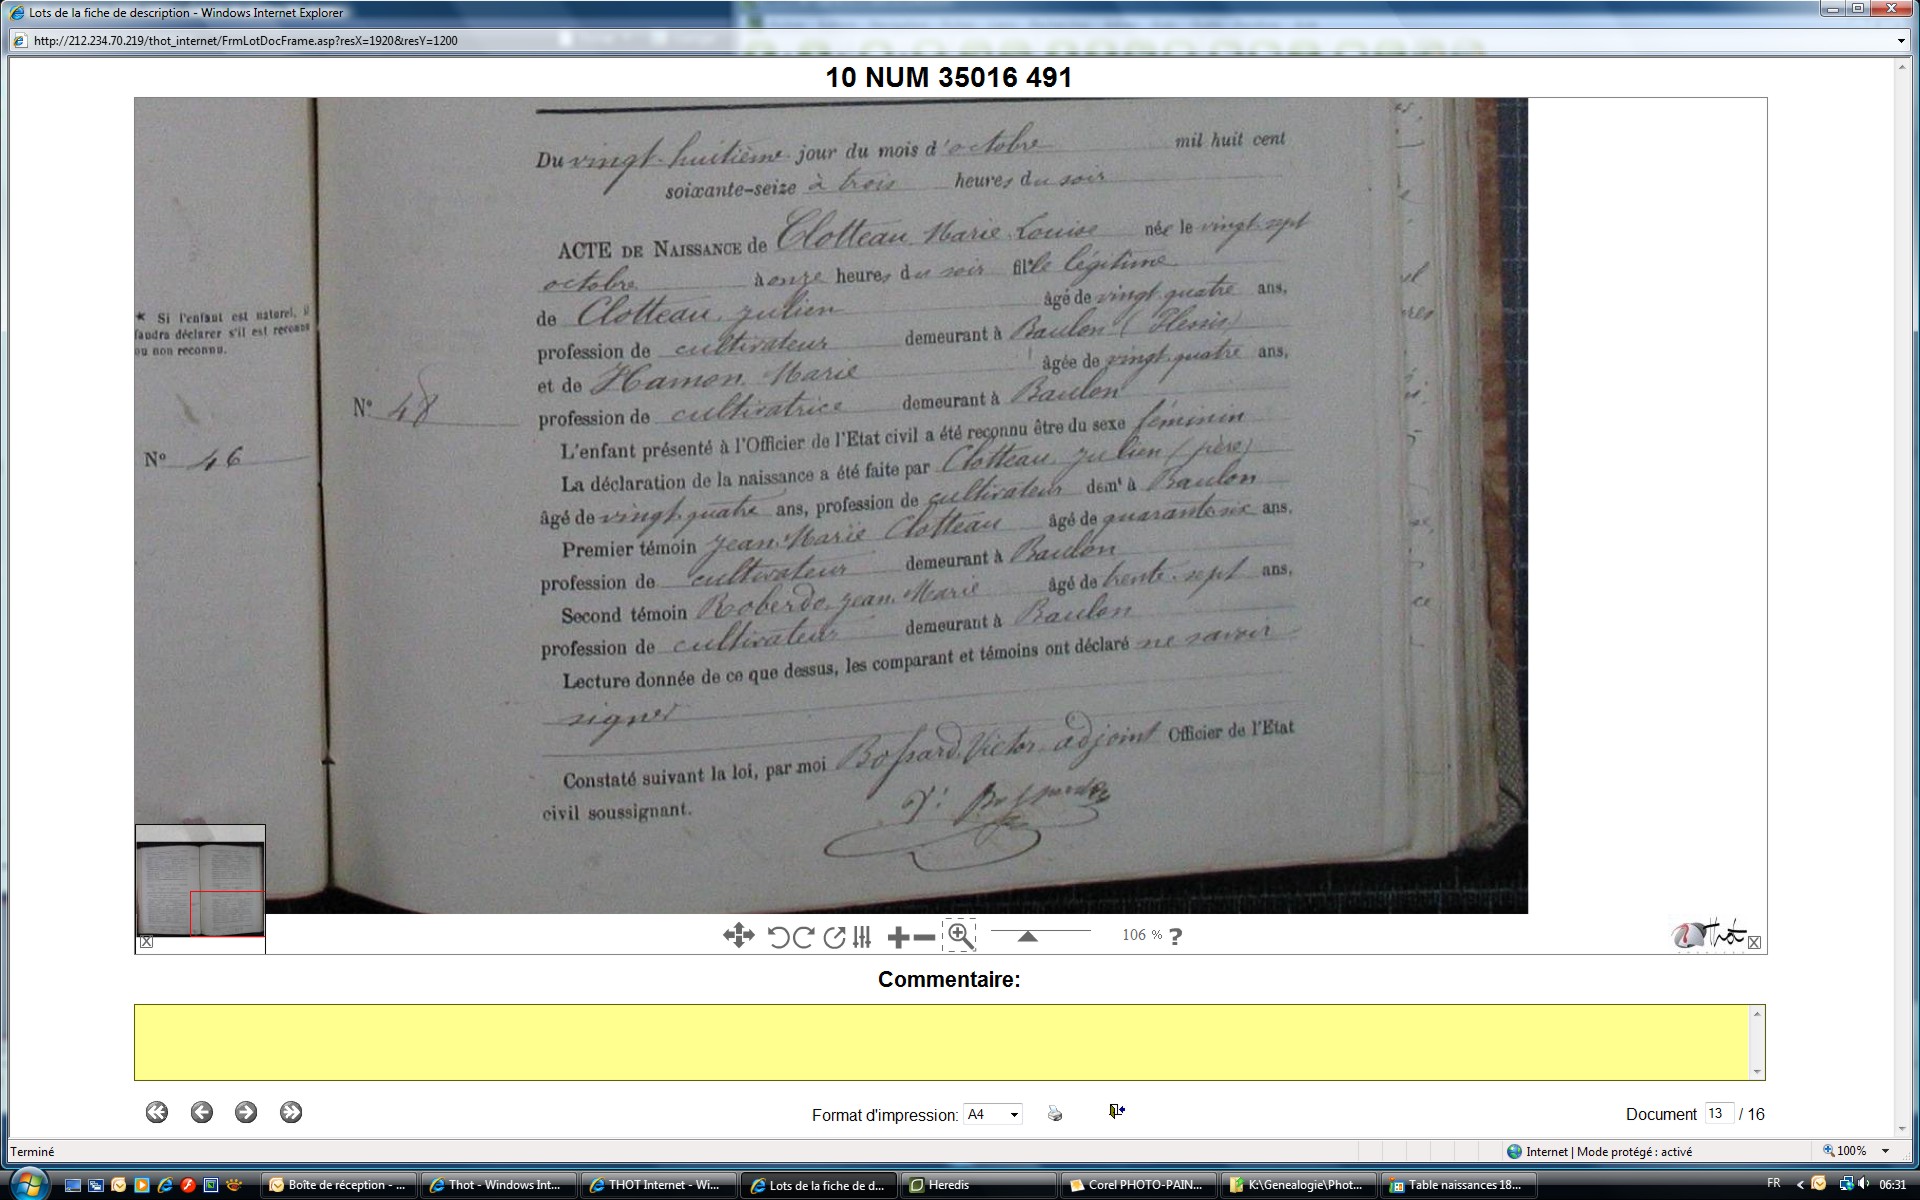 Lots de la fiche de description - Windows Internet Explorer
http://212.234.70.219/thot_internet/FrmLotDocFrame.asp?resX=1920&resY=1200
10 NUM 35016 491
* Si l'enfant est naturel, il
faudra déclarer s'il est reconnu
ou non reconnu.
N° 46
N° 48
Du vingt-huitième jour du mois d'octobre mil huit cent
soixante-seize à trois heures du soir
ACTE DE NAISSANCE de Clotteau Marie Louise née le vingt-sept
octobre à onze heures du soir fille légitime
de Clotteau Julien âgé de vingt quatre ans,
profession de cultivateur demeurant à Baulon (Plessis)
et de Hamon Marie âgée de vingt quatre ans,
profession de cultivatrice demeurant à Baulon
L'enfant présenté à l'Officier de l'Etat civil a été reconnu être du sexe féminin
La déclaration de la naissance a été faite par Clotteau Julien (père)
âgé de vingt quatre ans, profession de cultivateur demt à Baulon
Premier témoin Jean Marie Clotteau âgé de quarante six ans,
profession de cultivateur demeurant à Baulon
Second témoin Roberdo Jean Marie âgé de trente-sept ans,
profession de cultivateur demeurant à Baulon
Lecture donnée de ce que dessus, les comparant et témoins ont déclaré ne savoir
signer
Constaté suivant la loi, par moi Bossard Victor adjoint Officier de l'Etat
civil soussignant.
106 % ?
Thot
Commentaire:
Format d'impression: A4
Document 13 / 16
Terminé
Internet | Mode protégé : activé
100%
Boîte de réception - ...
Thot - Windows Int...
THOT Internet - Wi...
Lots de la fiche de d...
Heredis
Corel PHOTO-PAIN...
K:\Genealogie\Phot...
Table naissances 18...
FR
06:31